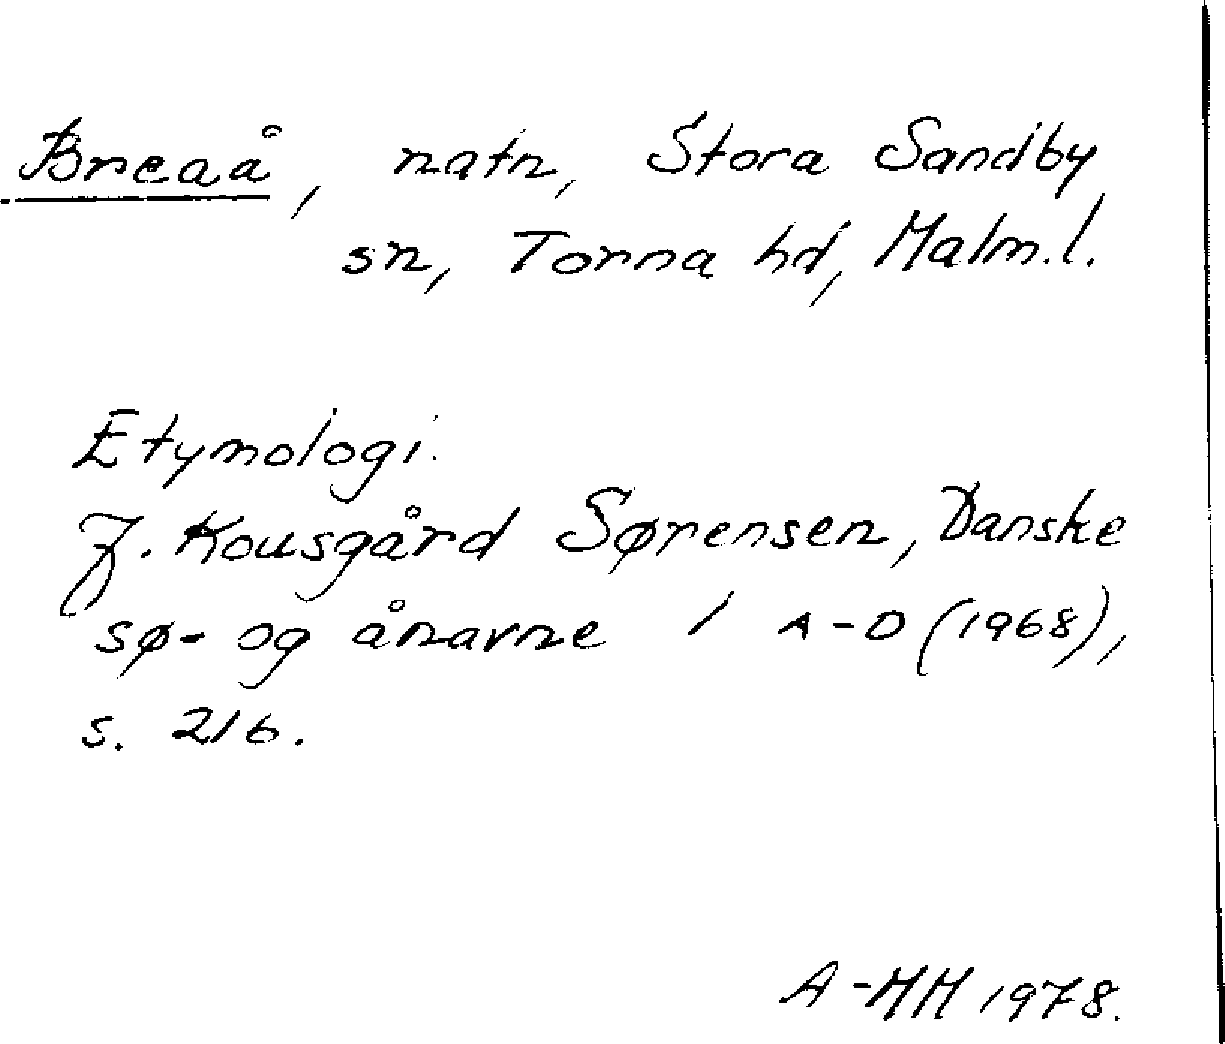 Breaå, natn, Stora Sandby
sn, Torna hd, Malm.l.
Etymologi.
J. Kousgård Sørensen, Danske
sø- og ånavne 1 A-D (1968),
s. 216.
A-MH 1978.